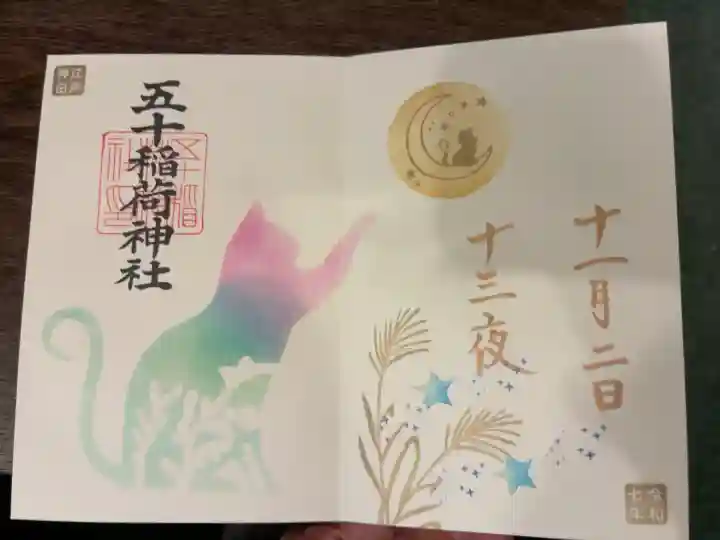 十一月二日
十三夜
令和
七年
五十稲荷神社
江戸
神田